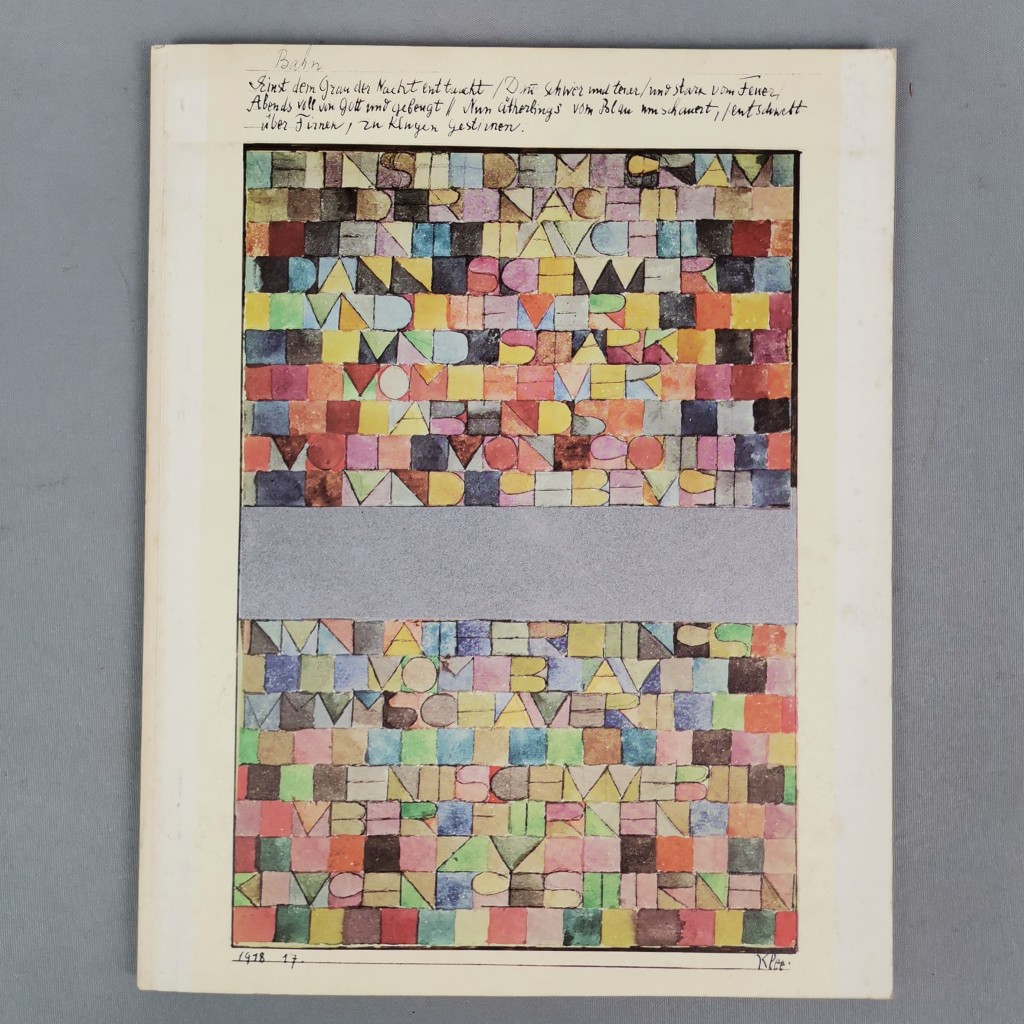 Bahn
Einst dem Grau der Nacht enttaucht / Dann schwer und teuer / und stark vom Feuer /
Abends voll von Gott und gebeugt / Nun ätherlings vom Blau umschauert, / entschwebt
über Firnen, zu klugen Gestirnen.
EINST DEM GRAW
DER NACHT
ENTTAVCHT
DANN SCHWER
VND TEVER
VND STARK
VOM FEVER
ABENDS
VOLL VON GOTT
VND GEBEVGT
NVN AETHERLINGS
VOM BLAV
VMSCHAVERT
ENTSCHWEBT
VBER FIRNEN
ZV
KLVGEN GESTIRNEN
1918 17.
Klee.